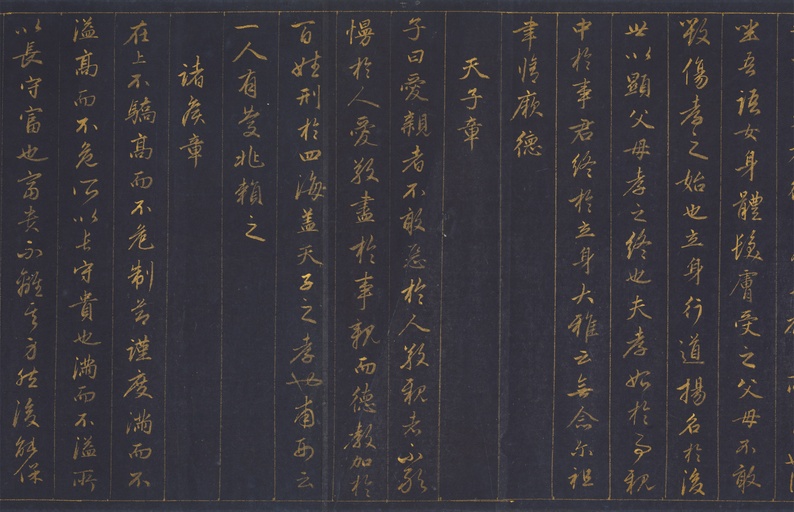 坐吾語女身體髮膚受之父母不敢
毀傷孝之始也立身行道揚名於後
世以顯父母孝之終也夫孝始於事親
中於事君終於立身大雅云無念尔祖
聿脩厥德
天子章
子曰愛親者不敢惡於人敬親者不敢
慢於人愛敬盡於事親而德教加於
百姓刑於四海盖天子之孝也甫刑云
一人有慶兆賴之
諸侯章
在上不驕高而不危制節謹度滿而不
溢高而不危所以長守貴也滿而不溢所
以長守富也富貴不離其身然後能保